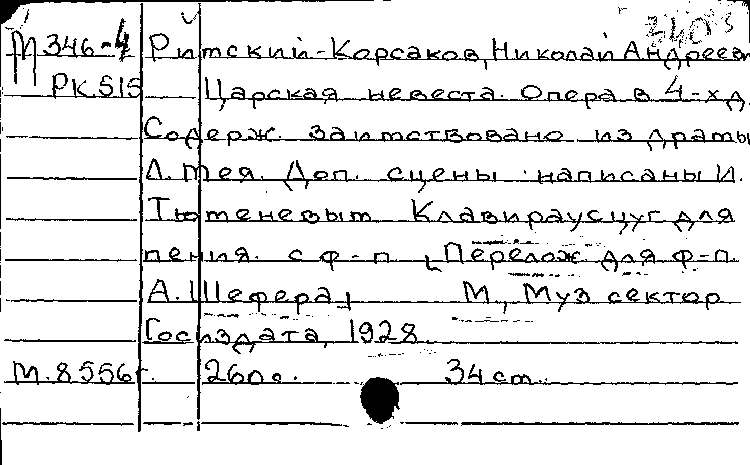 340 s
М 346-4 Римский-Корсаков, Николай Андреев
РК 515 Царская невеста. Опера в 4-х д.
Содерж. заимствовано из драмы
Л. Мея. Доп. сцены написаны И.
Тюменевым Клавираусцуг для
пения. с ф-п [Перелож для ф-п.
А. Шефера] М., Муз сектор
Госиздата, 1928.
М. 8556г. 260 с. 34 cm.